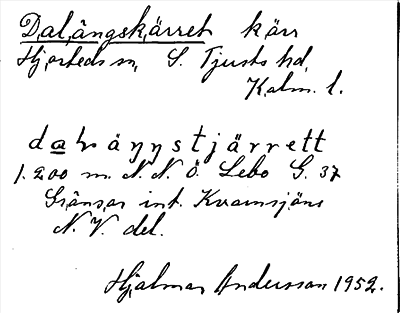 Dalängskärret kärr
Hjorteds sn, S. Tjusts hd,
Kalm. l.
1.200 m. N. N. Ö. Lebo G. 37
Gränsar int. Kvarnsjöns
N. V. del.
Hjalmar Andersson 1952.